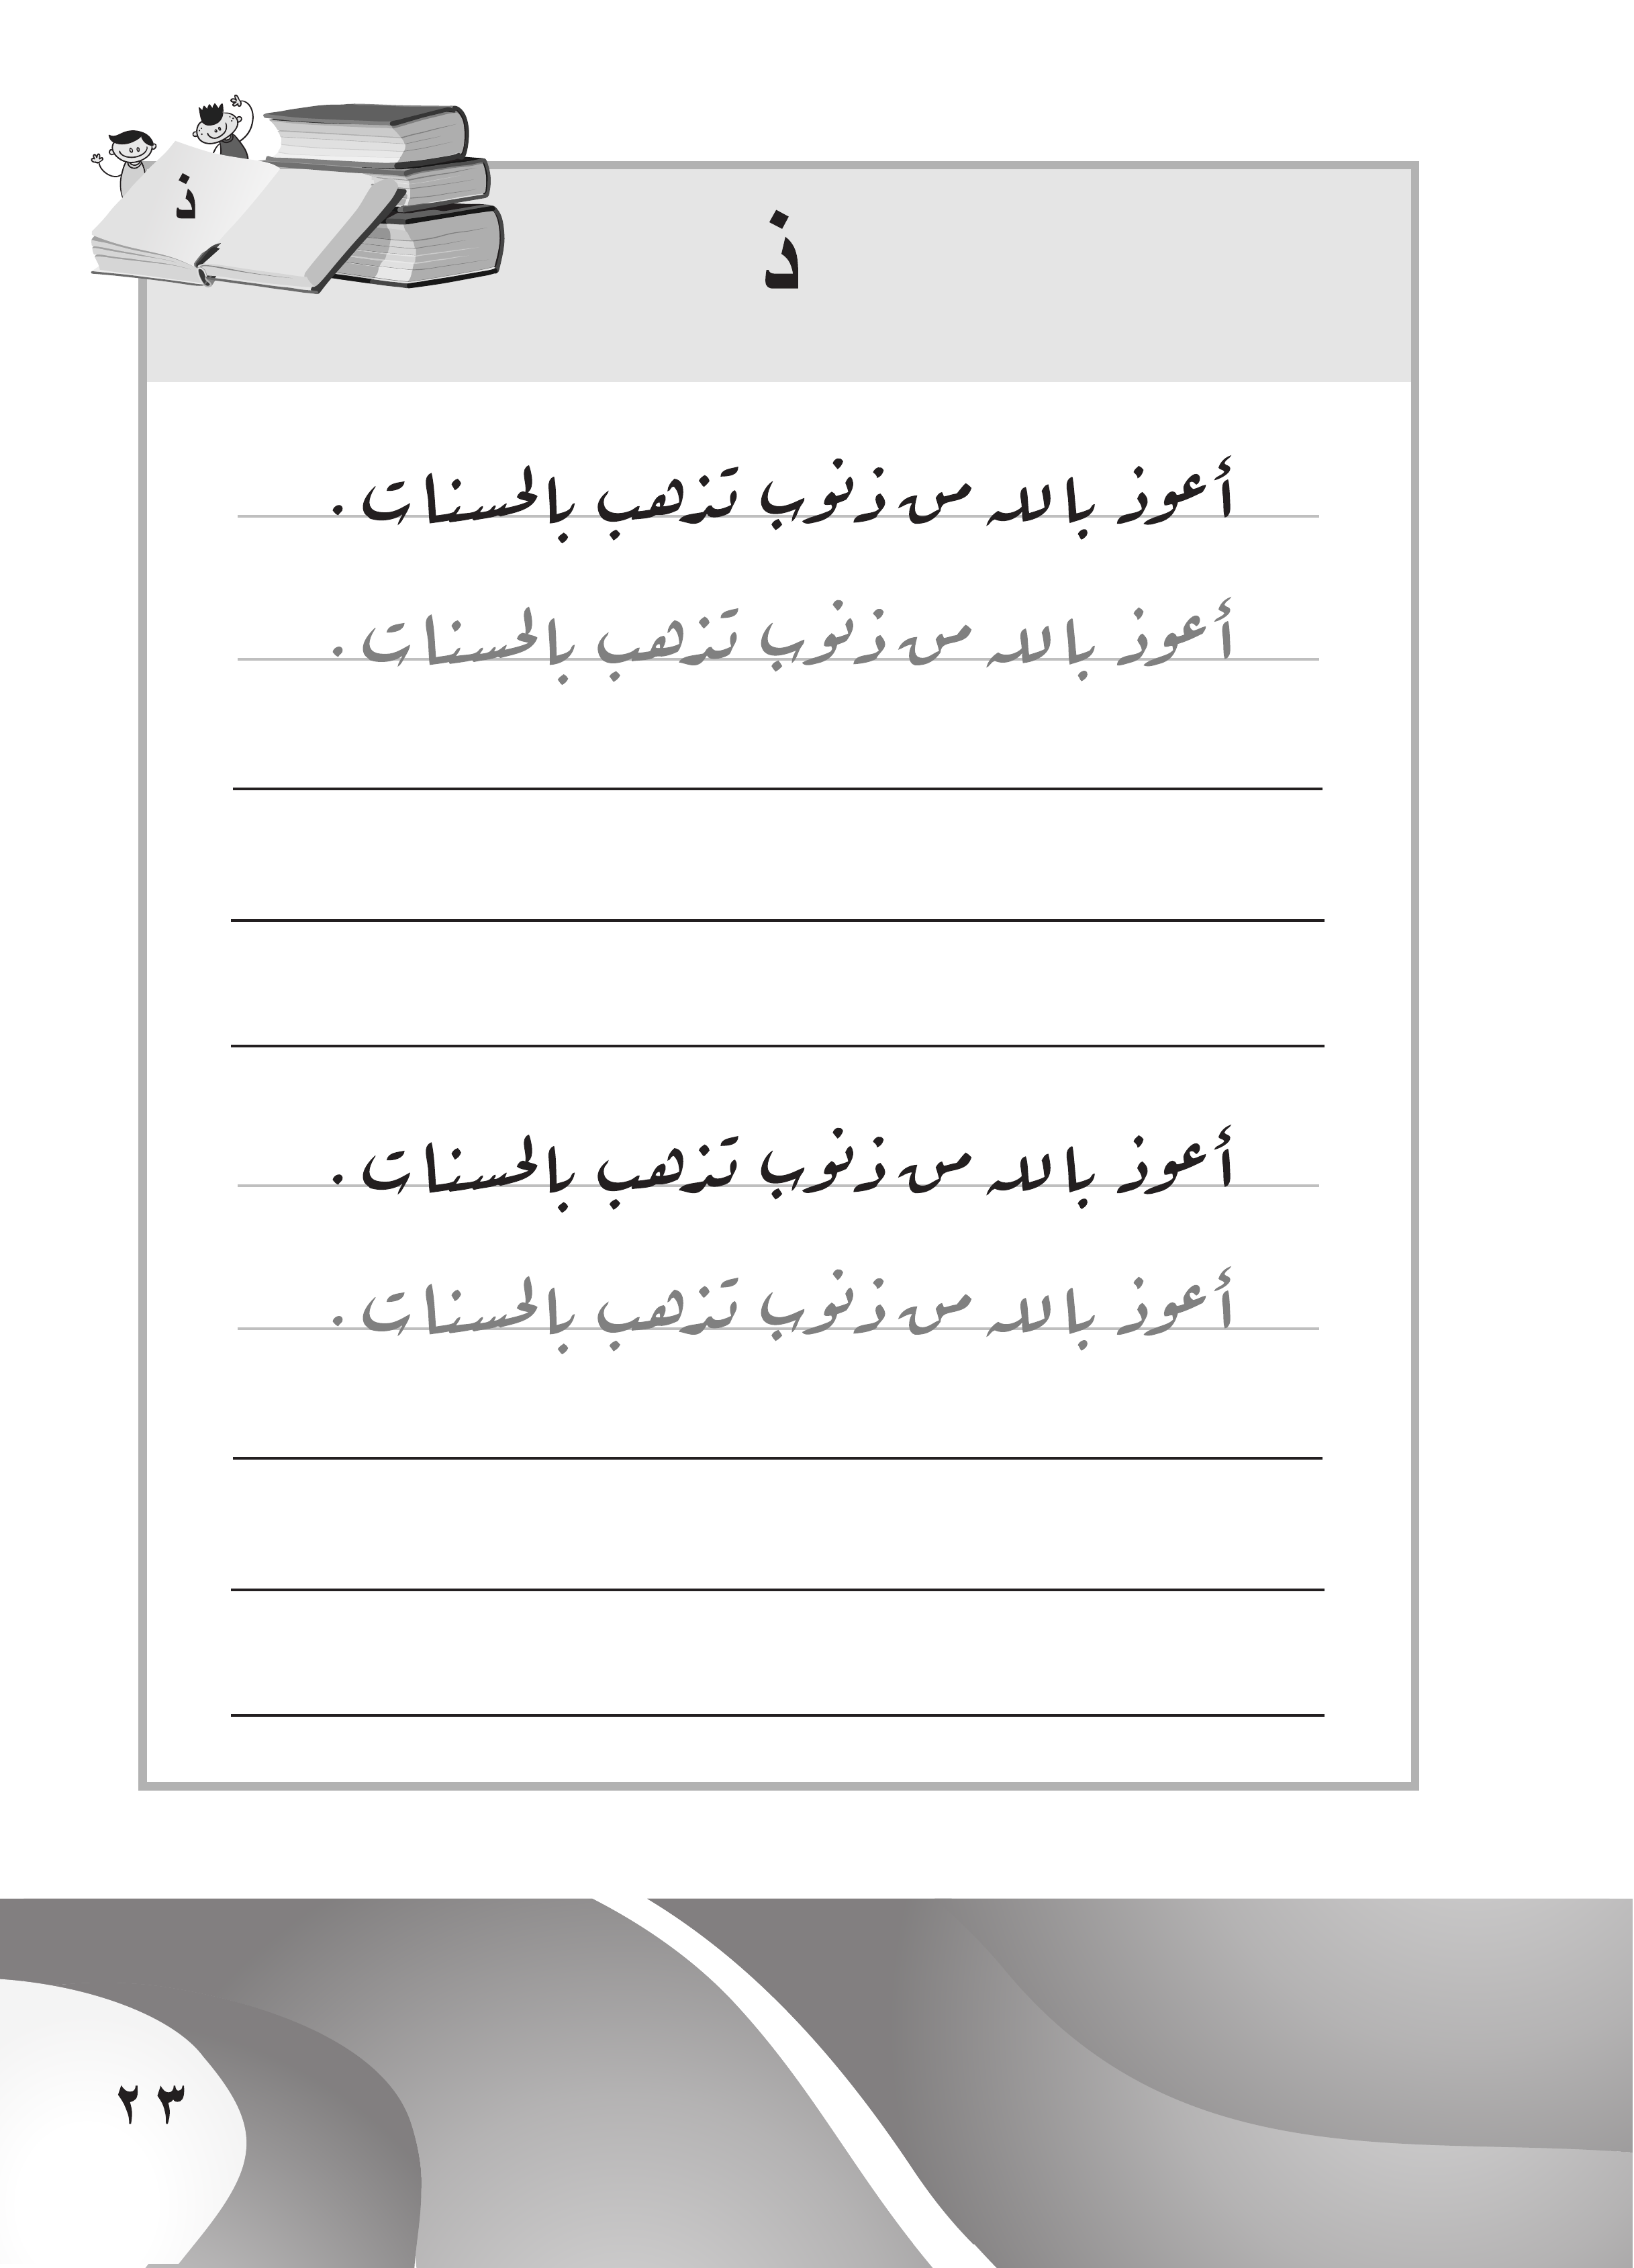 ذ
ذ
أعوذ بالله من ذنوب تذهب بالحسنات .
أعوذ بالله من ذنوب تذهب بالحسنات .
أعوذ بالله من ذنوب تذهب بالحسنات .
أعوذ بالله من ذنوب تذهب بالحسنات .
٢٣